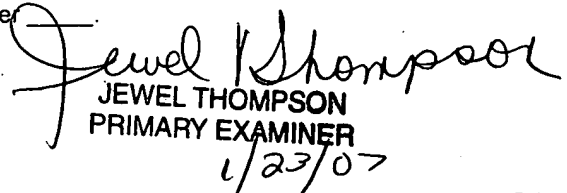 er
Jewel V Thompson
JEWEL THOMPSON
PRIMARY EXAMINER
1/23/07